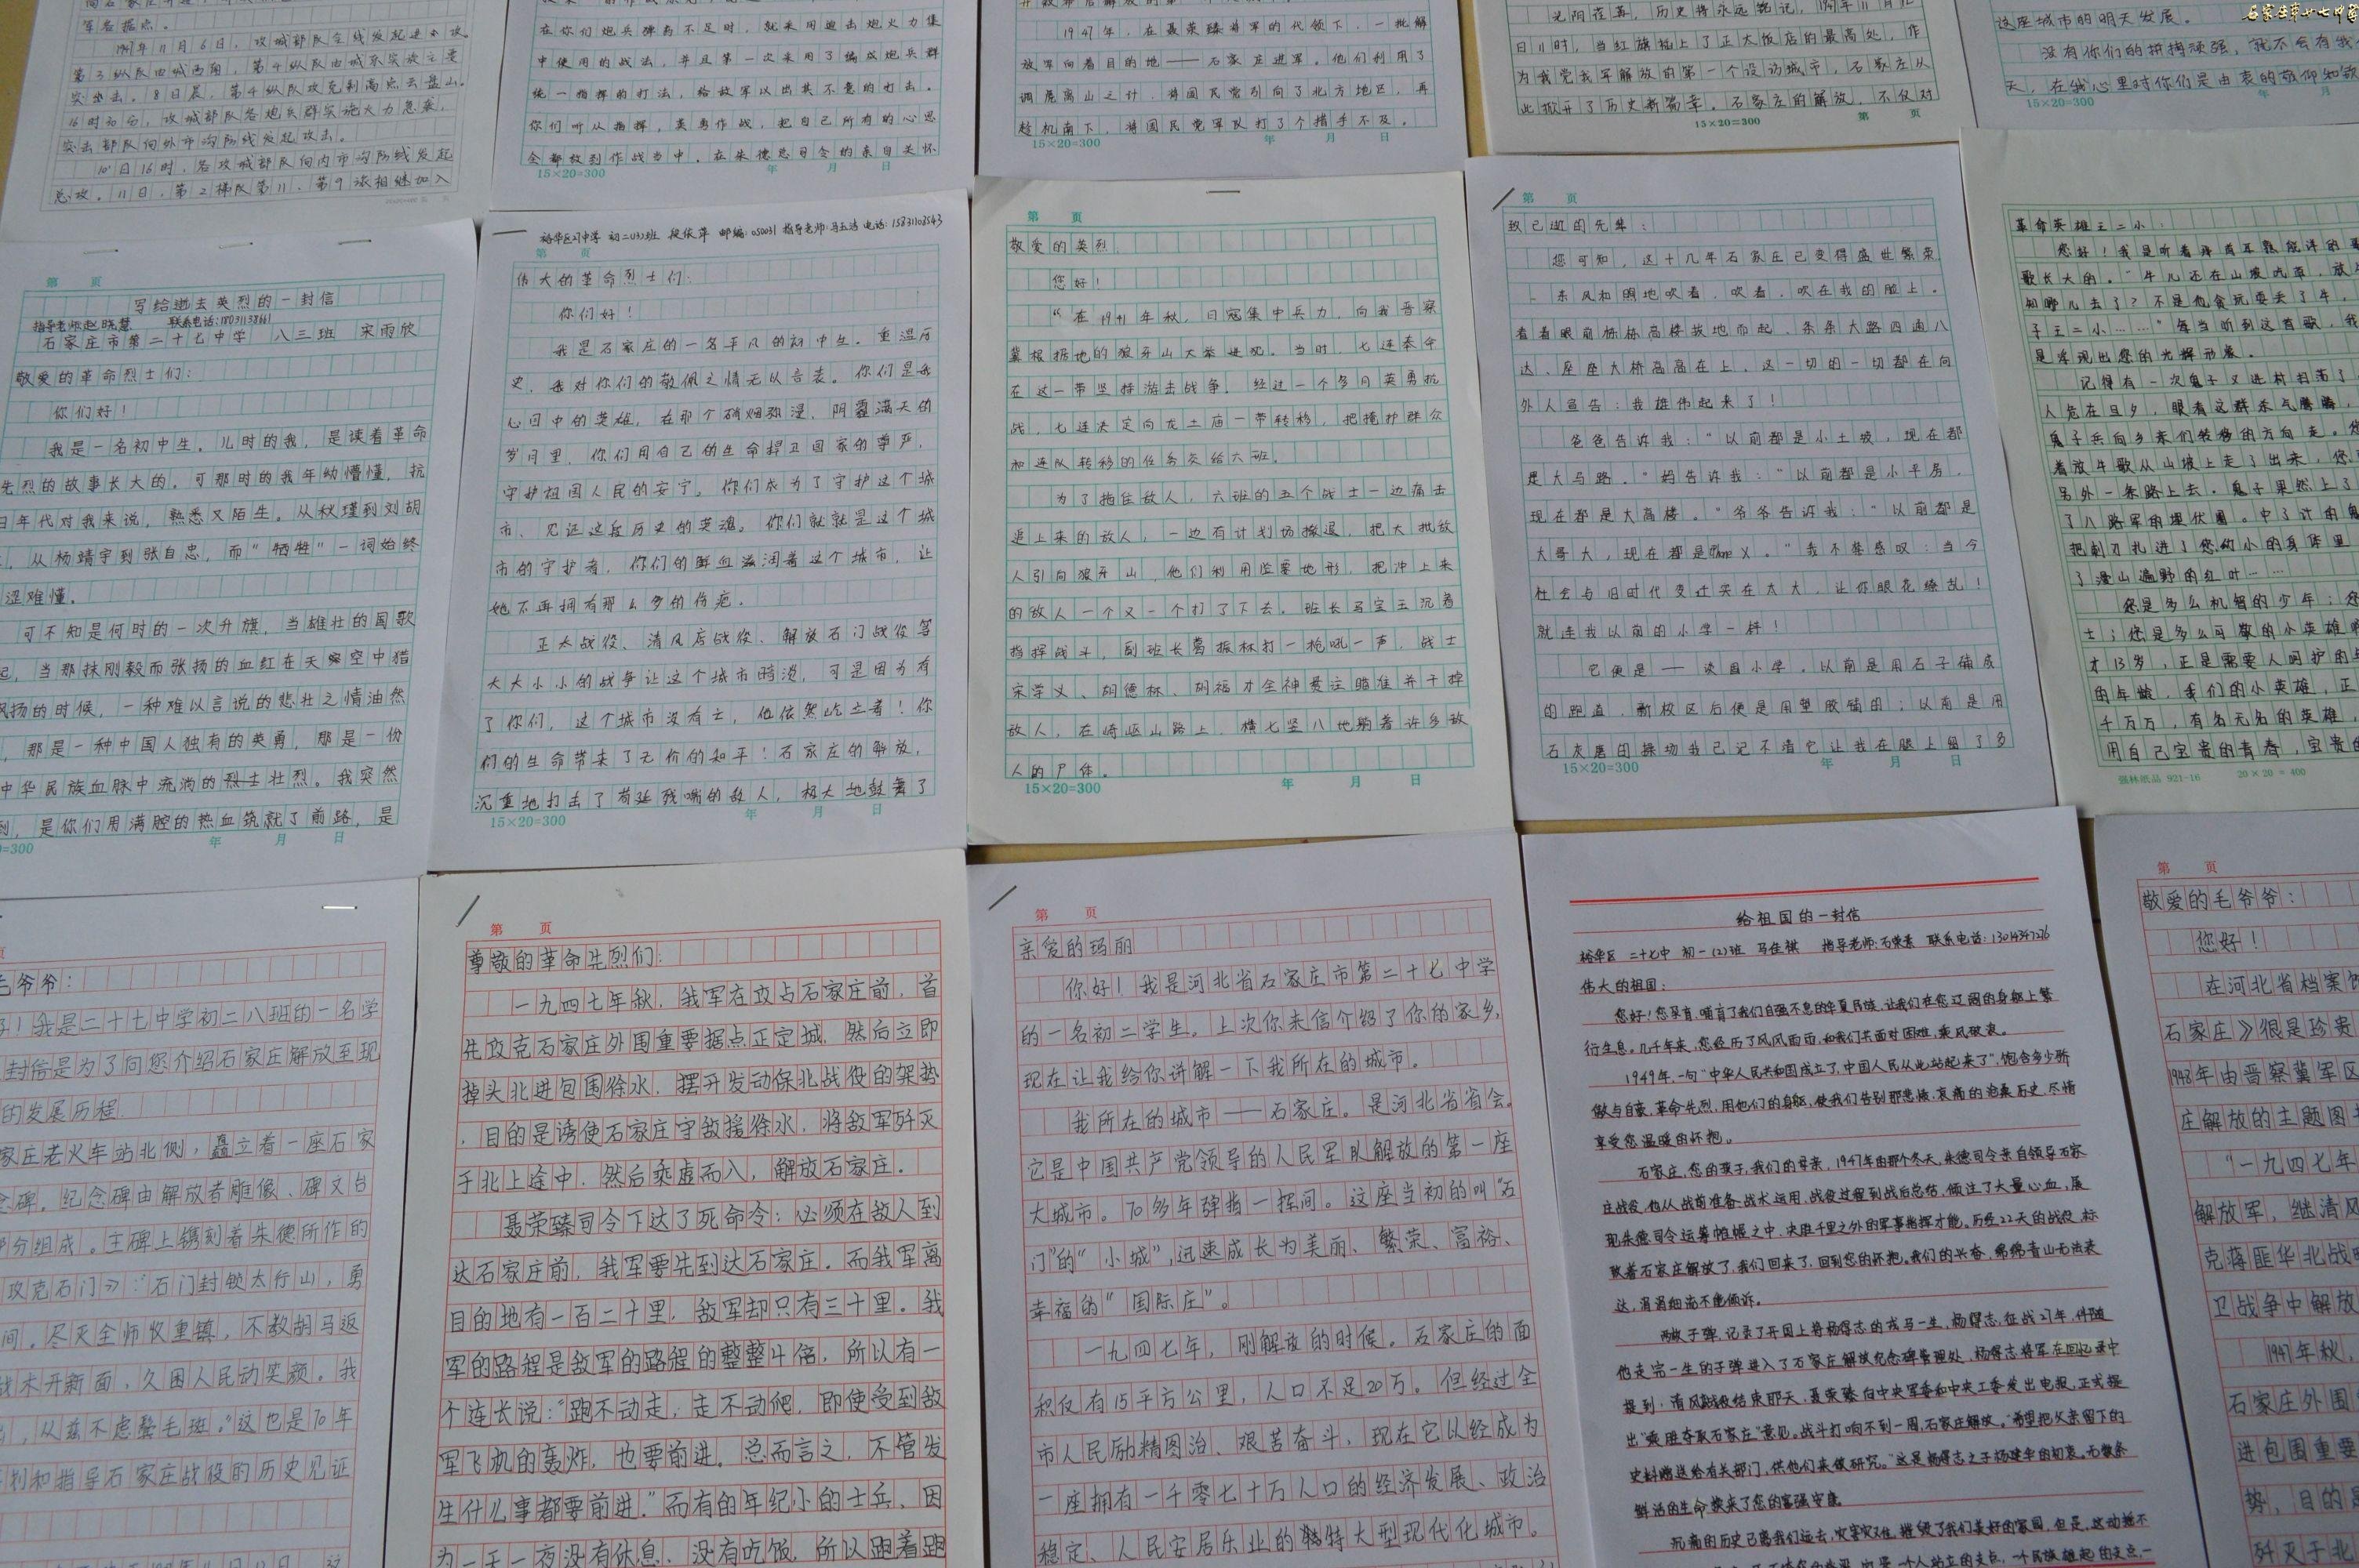 军各据点。
1947年11月6日，攻城部队全线发起进攻。
第3纵队由城西南，第4纵队由城东实施主要
突击。8日晨，第4纵队攻克制高点云盘山。
16时30分，攻城部队各炮兵群实施火力急袭，
突击部队向外市沟防线发起攻击。
10日16时，各攻城部队向内市沟防线发起
总攻。11日，第2梯队第11、第9旅相继加入
在你们炮兵弹药不足时，就采用迫击炮火力集
中使用的战法，并且第一次采用了编成炮兵群
统一指挥的打法，给敌军以出其不意的打击。
你们听从指挥，英勇作战，把自己所有的心思
全都放到作战当中。在朱德总司令的亲自关怀
15×20=300 年 月 日
1947年，在聂荣臻将军的代领下，一批解
放军向着目的地——石家庄进军。他们利用了
调虎离山之计，将国民党引向了北方地区，再
趁机南下，将国民党军队打了个措手不及。
15×20=300 年 月 日
光阴荏苒，历史将永远铭记，1947年11月12
日11时，当红旗插上了正太饭店的最高处，作
为我党我军解放的第一个设防城市，石家庄从
此掀开了历史新篇章。石家庄的解放，不仅对
15×20=300 第 页
石家庄市廿七中学
这座城市的明天发展。
没有你们的拼搏顽强，就不会有我
天，在我心里对你们是由衷的敬仰和
15×20=300 年 月
第 页
写给逝去英烈的一封信
指导老师:赵晓慧 联系电话:18031138661
石家庄市第二十七中学 八三班 宋雨欣
敬爱的革命烈士们：
你们好！
我是一名初中生。儿时的我，是读着革命
先烈的故事长大的。可那时的我年幼懵懂，抗
日年代对我来说，熟悉又陌生。从秋瑾到刘胡
，从杨靖宇到张自忠，而“牺牲”一词始终
涩难懂。
可不知是何时的一次升旗，当雄壮的国歌
起，当那抹刚毅而张扬的血红在天空中猎
风扬的时候，一种难以言说的悲壮之情油然
，那是一种中国人独有的英勇，那是一份
中华民族血脉中流淌的壮烈。我突然
到，是你们用满腔的热血筑就了前路，是
=300 年 月 日
裕华区27中学 初二(13)班 段依萍 邮编:050031 指导老师:马玉洁 电话:15831103543
第 页
伟大的革命烈士们：
你们好！
我是石家庄的一名平凡的初中生。重温历
史，我对你们的敬佩之情无以言表。你们是我
心目中的英雄，在那个硝烟弥漫，阴霾满天的
岁月里，你们用自己的生命捍卫国家的尊严，
守护祖国人民的安宁。你们成为了守护这个城
市、见证这段历史的英魂。你们就就是这个城
市的守护者，你们的鲜血滋润着这个城市，让
她不再拥有那么多的伤疤。
正太战役、清风店战役、解放石门战役等
大大小小的战争让这个城市
了你们，这个城市没有亡，他依然屹立着！你
们的生命带来了无价的和平！石家庄的解放，
沉重地打击了苟延残喘的敌人，极大地鼓舞了
15×20=300 年 月 日
第 页
敬爱的英烈
您好！
“在1941年秋，日寇集中兵力，向我晋察
冀根据地的狼牙山大举进犯。当时，七连奉命
在这一带坚持游击战争。经过一个多月英勇抗
战，七连决定向龙王庙一带转移，把掩护群众
和连队转移的任务交给六班。
为了拖住敌人，六班的五个战士一边痛击
追上来的敌人，一边有计划场撤退，把大批敌
人引向狼牙山，他们利用险要地形，把冲上来
的敌人一个又一个打了下去。班长马宝玉沉着
指挥战斗，副班长葛振林打一枪吼一声，战士
宋学义、胡德林、胡福才全神贯注瞄准并干掉
敌人，在崎岖山路上，横七竖八地躺着许多敌
人的尸体。
15×20=300 年 月 日
第 页
致已逝的先辈：
您可知，这十几年石家庄已变得盛世繁荣
，东风和煦地吹着，吹着，吹在我的脸上。
看着眼前栋栋高楼拔地而起，条条大路四通八
达，座座大桥高高在上，这一切的一切都在向
外人宣告：我雄伟起来了！
爸爸告诉我：“以前都是小土坡，现在都
是大马路。”妈告诉我：“以前都是小平房，
现在都是大高楼。”爷爷告诉我：“以前都是
大哥大，现在都是 X。”我不禁感叹：当今
社会与旧时代变迁实在太大，让你眼花缭乱！
就连我以前的小学一样！
它便是——谈固小学，以前是用石子铺成
的跑道，新校区后便是用塑胶铺的；以前是用
石灰磨的操场我已记不清它让我在腿上留了多
15×20=300 年 月 日
革命英雄王二小：
您好！我是听着
歌长大的。“牛儿还在山坡吃草，放
知哪儿去了？不是他贪玩耍丢了牛，
子王二小……”每当听到这首歌，我
是浮现出您的光辉形象。
记得有一次鬼子又进村扫荡了
人危在旦夕，眼看这群杀气腾腾，
鬼子兵向乡亲们转移的方向走。您
着放牛歌从山坡上走了出来，您
另外一条路上去。鬼子果然上了
了八路军的埋伏圈。中了计的鬼
把刺刀扎进了您幼小的身体里
了漫山遍野的红叶……
您是多么机智的少年；您
士；您是多么可敬的小英雄啊
才13岁，正是需要人呵护的
的年龄，我们的小英雄，正
千万万，有名无名的英雄，
用自己宝贵的青春，宝贵的
强林纸品 921-16 20×20=400
页
毛爷爷：
好！我是二十七中学初二八班的一名学
封信是为了向您介绍石家庄解放至现
的发展历程
家庄老火车站北侧，矗立着一座石家
念碑。纪念碑由解放者雕像、碑文台
部分组成。主碑上镌刻着朱德所作的
攻克石门》：“石门封锁太行山，勇
间。尽灭全师收重镇，不教胡马返
战术开新面，久困人民动笑颜。我
，从兹不虑鬓毛斑。”这也是70年
划和指导石家庄战役的历史见证
第 页
尊敬的革命先烈们：
一九四七年秋，我军在攻占石家庄前，首
先攻克石家庄外围重要据点正定城，然后立即
掉头北进包围徐水，摆开发动保北战役的架势
，目的是诱使石家庄守敌援徐水，将敌军歼灭
于北上途中，然后乘虚而入，解放石家庄。
聂荣臻司令下达了死命令：必须在敌人到
达石家庄前，我军要先到达石家庄。而我军离
目的地有一百二十里，敌军却只有三十里。我
军的路程是敌军的路程的整整4倍，所以有一
个连长说：“跑不动走，走不动爬，即使受到敌
军飞机的轰炸，也要前进。总而言之，不管发
生什么事都要前进。”而有的年纪小的士兵，因
为一天一夜没有休息、没有吃饭，所以跑着跑
第 页
亲爱的玛丽
你好！我是河北省石家庄市第二十七中学
的一名初二学生。上次你来信介绍了你的家乡，
现在让我给你讲解一下我所在的城市。
我所在的城市——石家庄。是河北省省会。
它是中国共产党领导的人民军队解放的第一座
大城市。70多年弹指一挥间。这座当初的叫“石
门”的“小城”，迅速成长为美丽、繁荣、富裕、
幸福的“国际庄”。
一九四七年，刚解放的时候。石家庄的面
积仅有15平方公里，人口不足20万。但经过全
市人民励精图治、艰苦奋斗，现在它以经成为
一座拥有一千零七十万人口的经济发展、政治
稳定、人民安居乐业的特大型现代化城市。
给祖国的一封信
裕华区 二十七中 初一(2)班 马佳祺 指导老师:石荣素 联系电话:13014347226
伟大的祖国：
您好！您孕育、哺育了我们自强不息的华夏民族，让我们在您辽阔的身躯上繁
衍生息。几千年来，您经历了风风雨雨，和我们共面对困难，乘风破浪。
1949年，一句“中华人民共和国成立了，中国人民从此站起来了”，饱含多少骄
傲与自豪，革命先烈，用他们的身躯，使我们告别那悲惨、哀痛的沧桑历史，尽情
享受您温暖的怀抱。
石家庄，您的孩子，我们的母亲，1947年的那个冬天，朱德司令亲自领导石家
庄战役，他从战前准备、战术运用、战役过程到战后总结，倾注了大量心血，展
现朱德司令运筹帷幄之中，决胜千里之外的军事指挥才能。历经22天的战役，标
致着石家庄解放了，我们回来了，回到您的怀抱。我们的兴奋，绵绵青山无法表
达，涓涓细流不能倾诉。
两枚子弹，记录了开国上将杨得志的戎马一生，杨得志，征战27年，伴随
他走完一生的子弹进入了石家庄解放纪念碑管理处，杨得志将军在回忆录中
提到：清风店战役结束那天，聂荣臻向中央军委和中央工委发出电报，正式提
出“乘胜夺取石家庄”意见。战斗打响不到一周，石家庄解放。“希望把父亲留下的
史料赠送给有关部门，供他们来做研究。”这是杨得志之子杨建华的初衷。无数条
鲜活的生命换来了您的富强安康。
沉痛的历史已离我们远去，灾害灾难，摧毁了我们美好的家园，但是，这动摇不
第 页
敬爱的毛爷爷：
您好！
在河北省档案馆
石家庄》很是珍贵
1948年由晋察冀军区
庄解放的主题图
“一九四七年
解放军，继清风
克蒋匪华北战略
卫战争中解放
1947年秋，
石家庄外围
进包围重要
势，目的是
歼灭于北